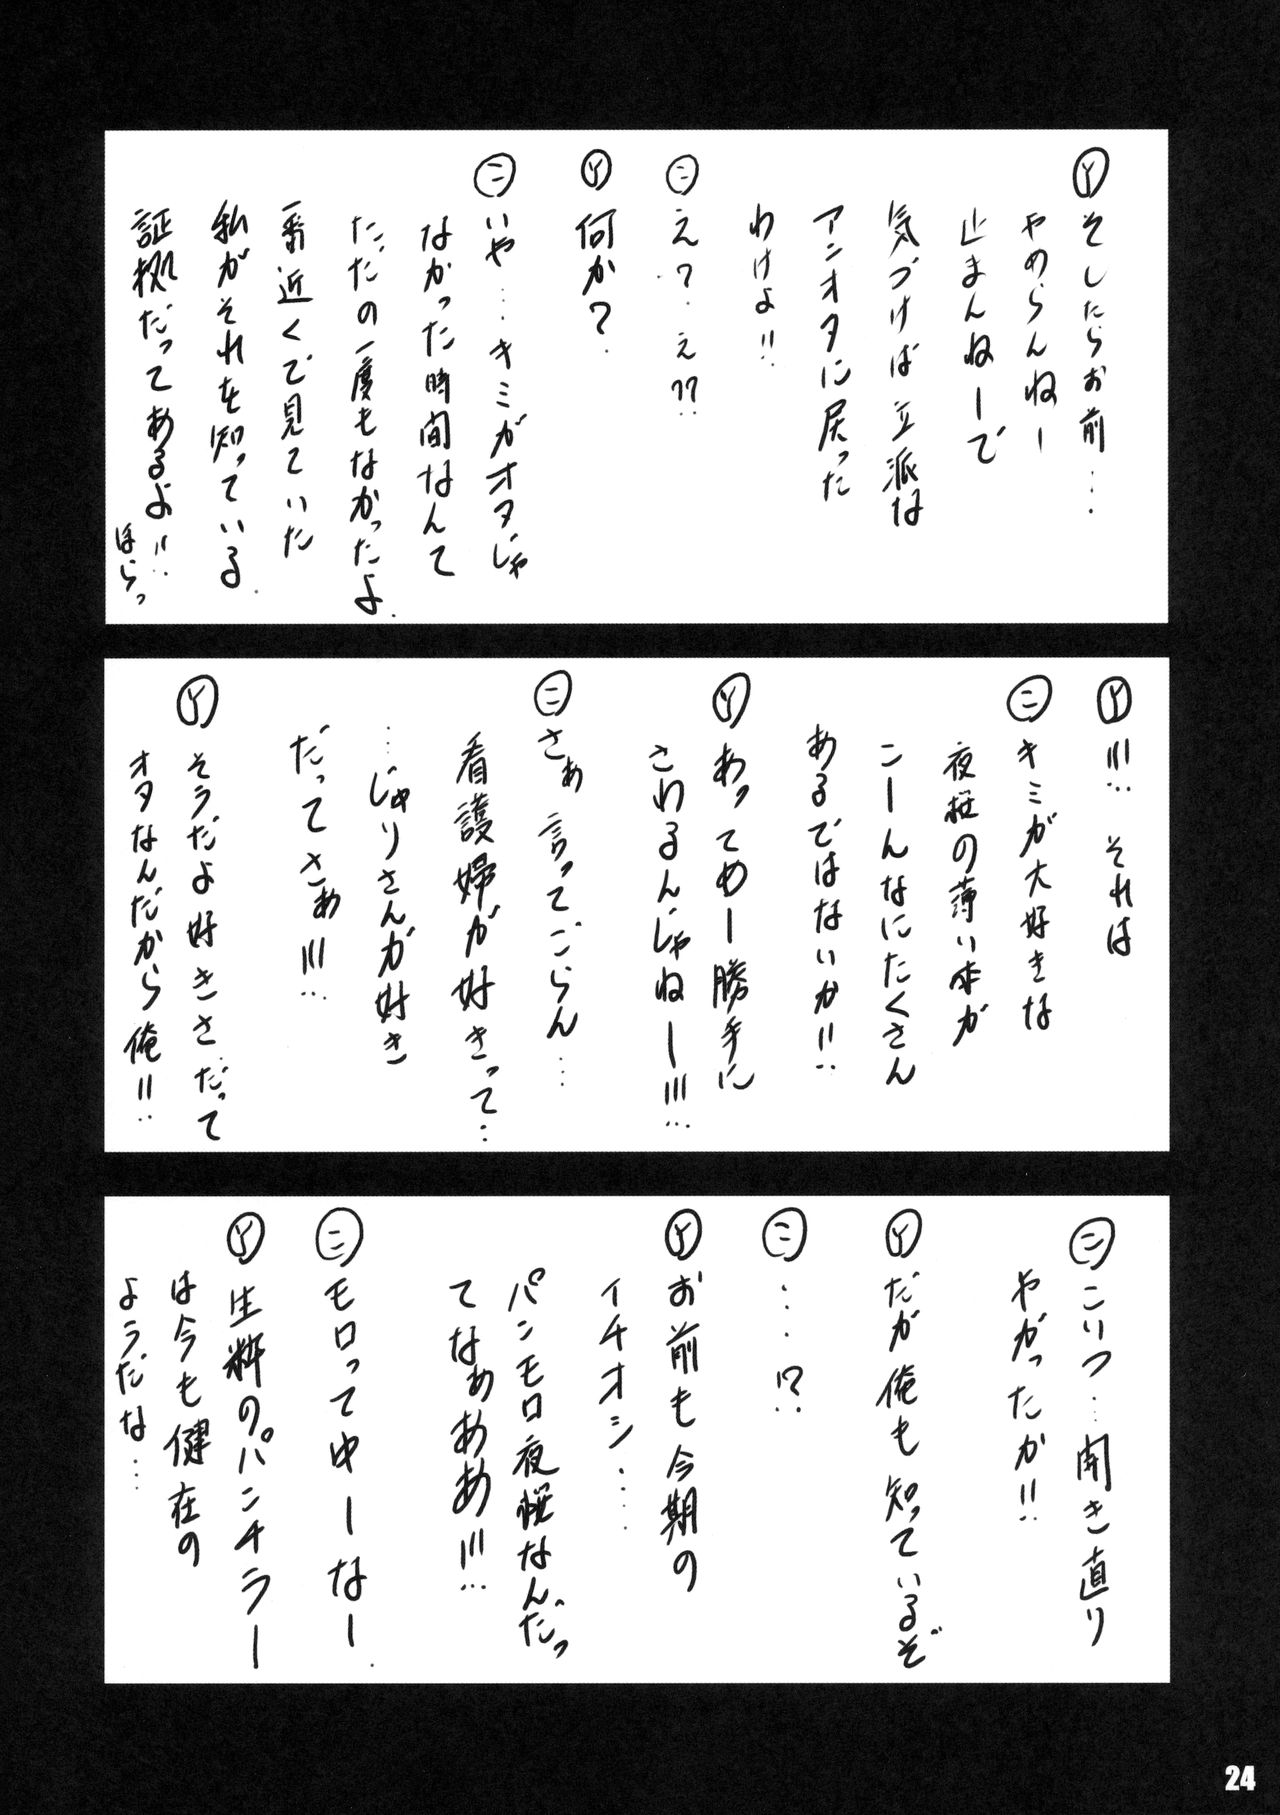 Ⓨそしたらお前…
やめらんねー
止まんねーで
気づけば立派な
アンオタに戻った
わけよ!!
㊁え?え??
Ⓨ何か?
㊁いや…キミがオタじゃ
なかった時間なんて
ただの一度もなかったよ.
一番近くで見ていた
私がそれを知っている.
証拠だってあるよ!!
ほらっ
Ⓨ!!! それは
㊁キミが大好きな
夜桜の薄い本が
こーんなにたくさん
あるではないか!!
Ⓨあってめー勝手に
さわるんじゃねー!!!
㊁さぁ言ってごらん…
看護婦が好きって…
…じゅりさんが好き
だってさぁ!!!
Ⓨそうだよ好きさだって
オタなんだから俺!!
㊁こいつ…開き直り
やがったか!!
Ⓨだが俺も知っているぞ
㊁…!?
Ⓨお前も今期の
イチオシ…
パンモロ夜桜なんだっ
てなぁああ!!!
㊁モロってゆーなー.
Ⓨ生粋のパンチラー
は今も健在の
ようだな…
24